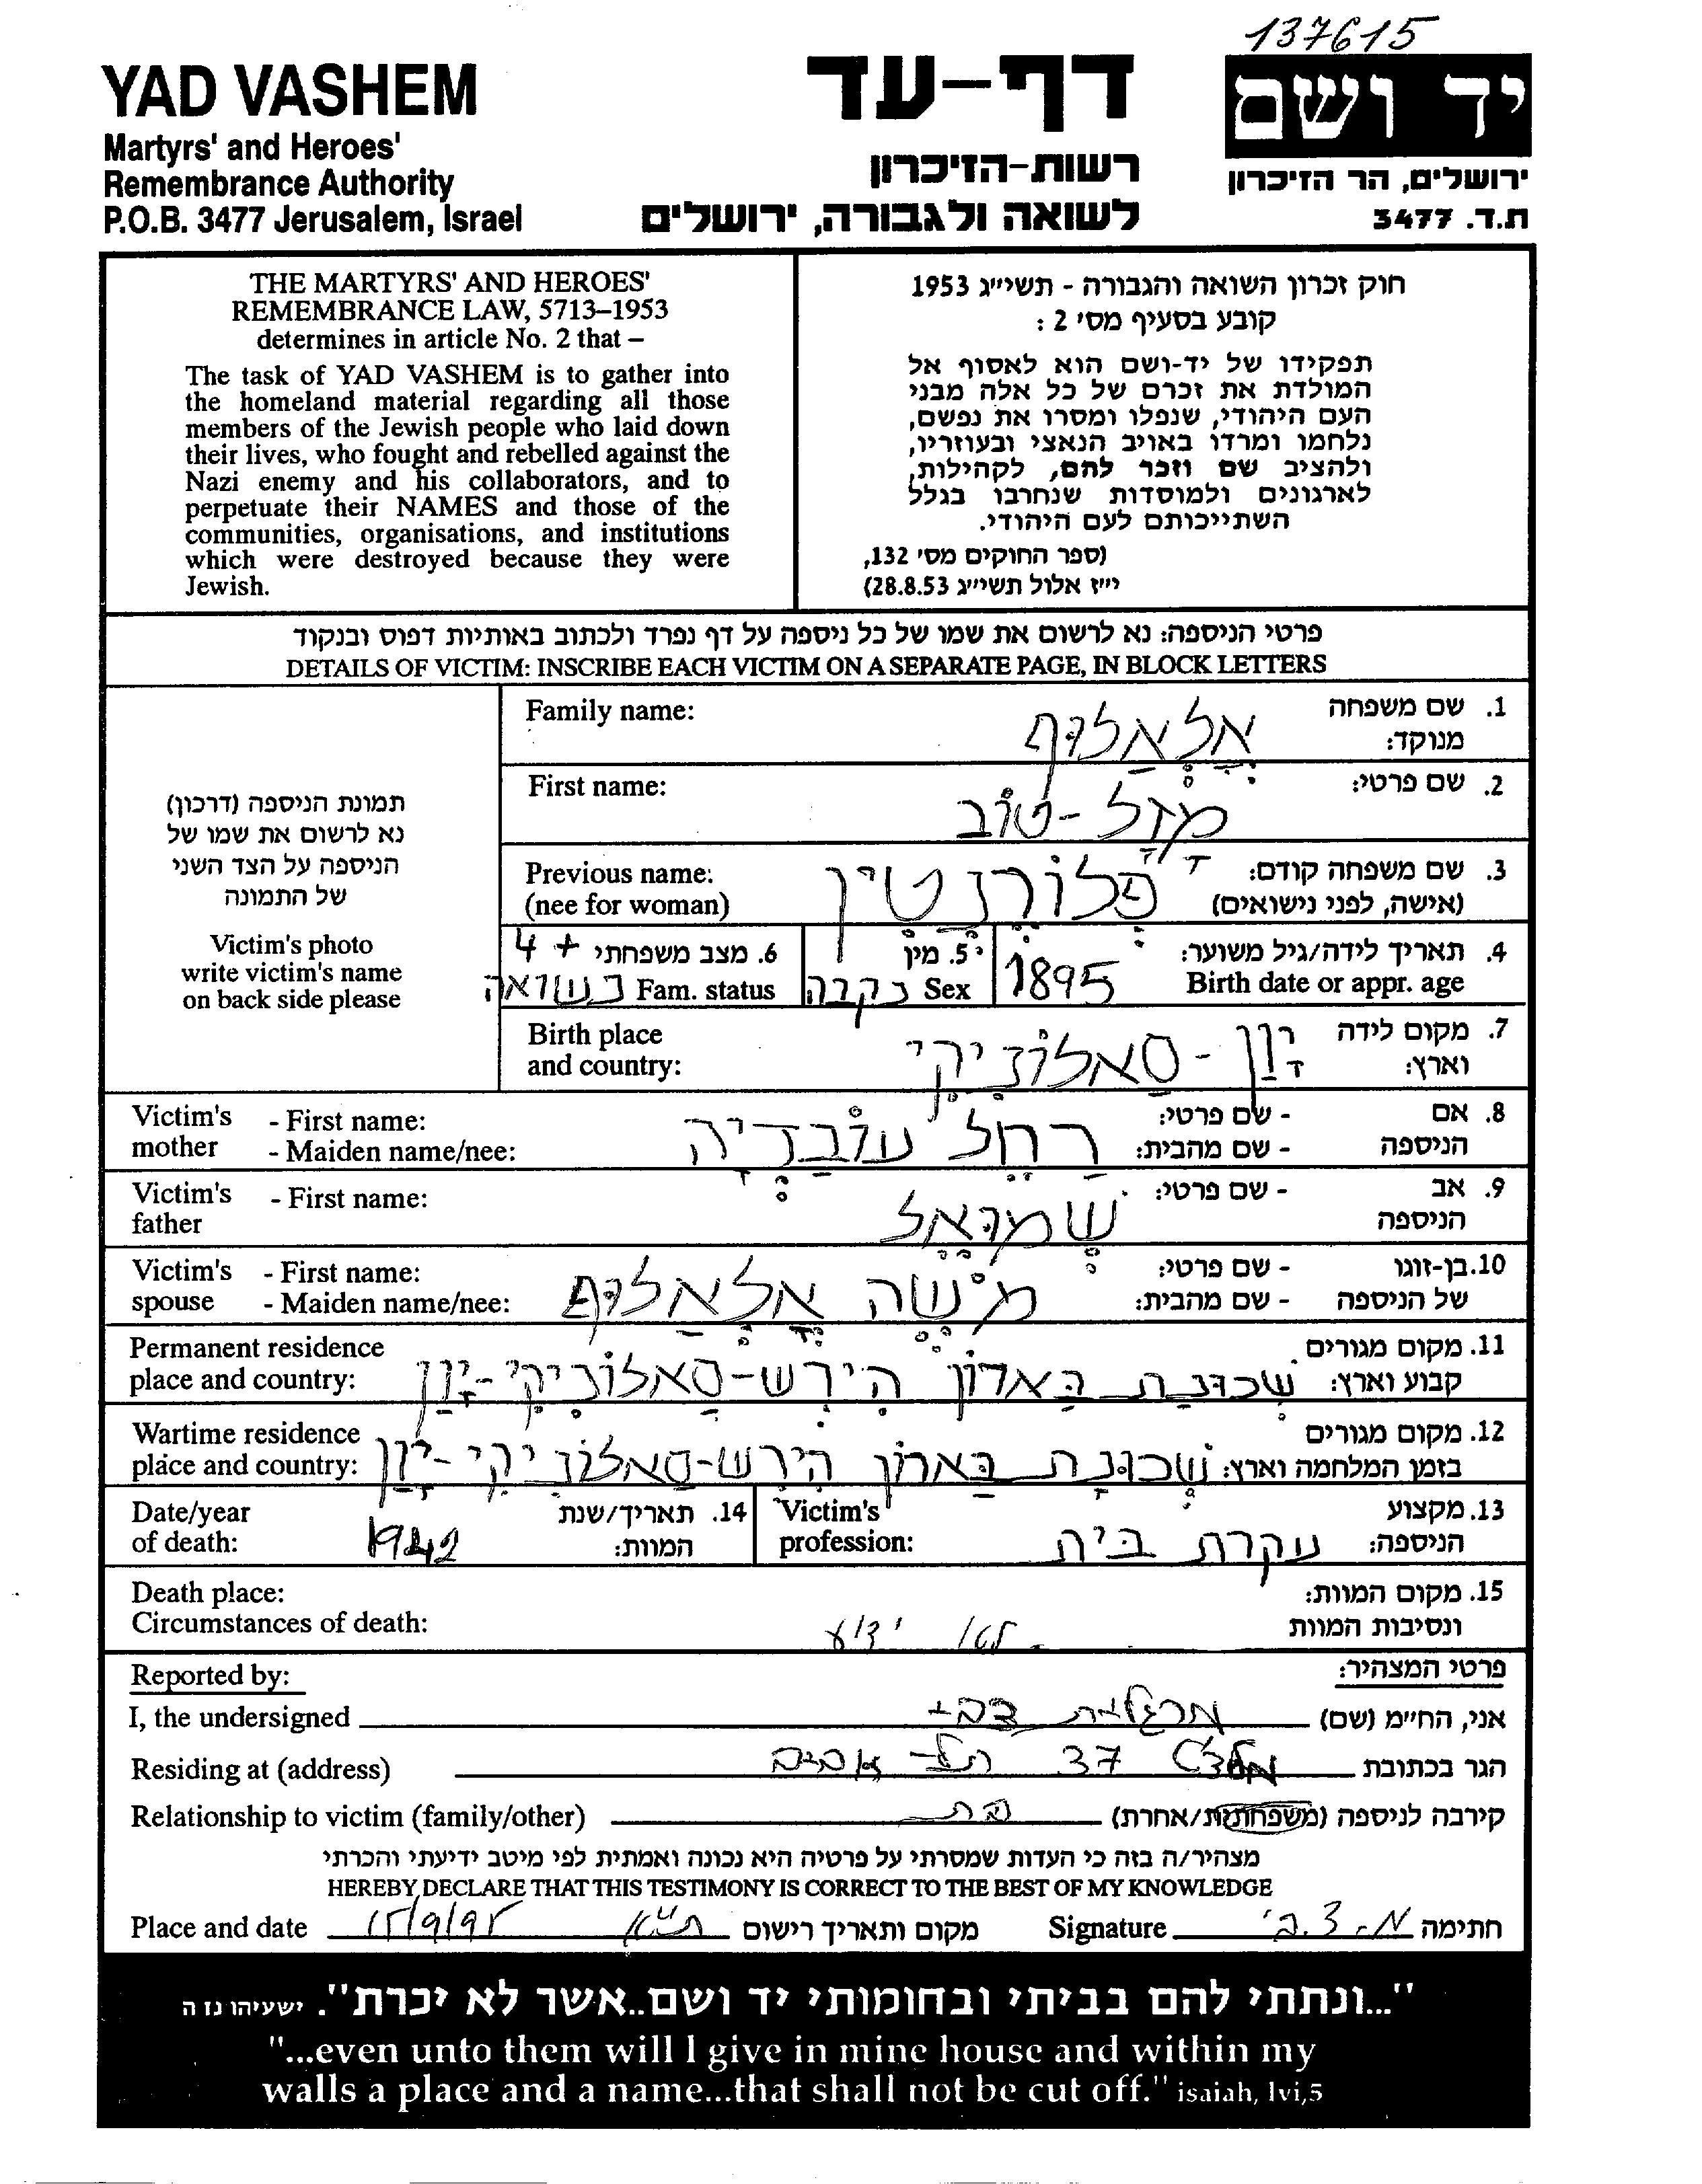 137615
YAD VASHEM
Martyrs' and Heroes'
Remembrance Authority
P.O.B. 3477 Jerusalem, Israel
דף-עד
רשות-הזיכרון
לשואה ולגבורה, ירושלים
יד ושם
ירושלים, הר הזיכרון
ת.ד. 3477
THE MARTYRS' AND HEROES'
REMEMBRANCE LAW, 5713–1953
determines in article No. 2 that –
The task of YAD VASHEM is to gather into
the homeland material regarding all those
members of the Jewish people who laid down
their lives, who fought and rebelled against the
Nazi enemy and his collaborators, and to
perpetuate their NAMES and those of the
communities, organisations, and institutions
which were destroyed because they were
Jewish.
חוק זכרון השואה והגבורה - תשי״ג 1953
קובע בסעיף מס׳ 2 :
תפקידו של יד-ושם הוא לאסוף אל
המולדת את זכרם של כל אלה מבני
העם היהודי, שנפלו ומסרו את נפשם,
נלחמו ומרדו באויב הנאצי ובעוזריו,
ולהציב שם וזכר להם, לקהילות,
לארגונים ולמוסדות שנחרבו בגלל
השתייכותם לעם היהודי.
(ספר החוקים מס׳ 132,
י״ז אלול תשי״ג 28.8.53)
פרטי הניספה: נא לרשום את שמו של כל ניספה על דף נפרד ולכתוב באותיות דפוס ובנקוד
DETAILS OF VICTIM: INSCRIBE EACH VICTIM ON A SEPARATE PAGE, IN BLOCK LETTERS
תמונת הניספה (דרכון)
נא לרשום את שמו של
הניספה על הצד השני
של התמונה
Victim's photo
write victim's name
on back side please
1. שם משפחה מנוקד: אלאלוף Family name:
2. שם פרטי: מזל-טוב First name:
3. שם משפחה קודם: (אישה, לפני נישואים) פלורנטין Previous name: (nee for woman)
4. תאריך לידה/גיל משוער: Birth date or appr. age 1895
5. מין Sex נקבה
6. מצב משפחתי Fam. status נשואה + 4
7. מקום לידה וארץ: יוון - סאלוניקי Birth place and country:
8. אם הניספה - שם פרטי: - שם מהבית: רחל עובדיה Victim's mother - First name: - Maiden name/nee:
9. אב הניספה - שם פרטי: שמואל Victim's father - First name:
10. בן-זוגו של הניספה - שם פרטי: - שם מהבית: משה אלאלוף Victim's spouse - First name: - Maiden name/nee:
11. מקום מגורים קבוע וארץ: שכונת בארון הירש-סאלוניקי-יוון Permanent residence place and country:
12. מקום מגורים בזמן המלחמה וארץ: שכונת בארון הירש-סאלוניקי-יוון Wartime residence place and country:
13. מקצוע הניספה: עקרת בית Victim's profession:
14. תאריך/שנת המוות: 1942 Date/year of death:
15. מקום המוות: ונסיבות המוות לא ידוע Death place: Circumstances of death:
פרטי המצהיר: Reported by:
אני, החי״מ (שם) מרגלית I, the undersigned
הגר בכתובת 37 תל-אביב Residing at (address)
קירבה לניספה (משפחתית/אחרת) בת Relationship to victim (family/other)
מצהיר/ה בזה כי העדות שמסרתי על פרטיה היא נכונה ואמתית לפי מיטב ידיעתי והכרתי
HEREBY DECLARE THAT THIS TESTIMONY IS CORRECT TO THE BEST OF MY KNOWLEDGE
חתימה Signature מקום ותאריך רישום ת״א Place and date
"...ונתתי להם בביתי ובחומותי יד ושם..אשר לא יכרת". ישעיהו נו ה
"...even unto them will I give in mine house and within my
walls a place and a name...that shall not be cut off." isaiah, lvi,5